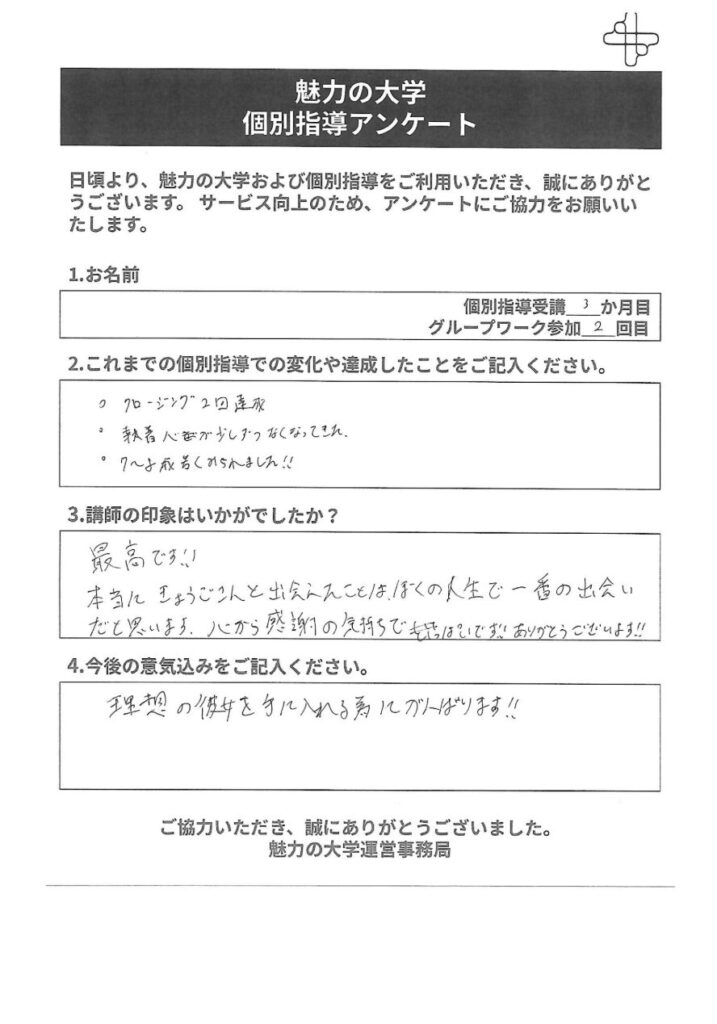 魅力の大学
個別指導アンケート
日頃より、魅力の大学および個別指導をご利用いただき、誠にありがと
うございます。 サービス向上のため、アンケートにご協力をお願いい
たします。
1.お名前
個別指導受講 3 か月目
グループワーク参加 2 回目
2.これまでの個別指導での変化や達成したことをご記入ください。
。 クロージング2回達成
。 執着心が少しずつなくなってきた。
。 く められました!!
3.講師の印象はいかがでしたか？
最高です!!
本当に きょうごさんと出会えたことは、ぼくの人生で一番の出会い
だと思います。心から感謝の気持ちで いっぱいです!! ありがとうございます!!
4.今後の意気込みをご記入ください。
理想の彼女を手に入れる為にがんばります!!
ご協力いただき、誠にありがとうございました。
魅力の大学運営事務局